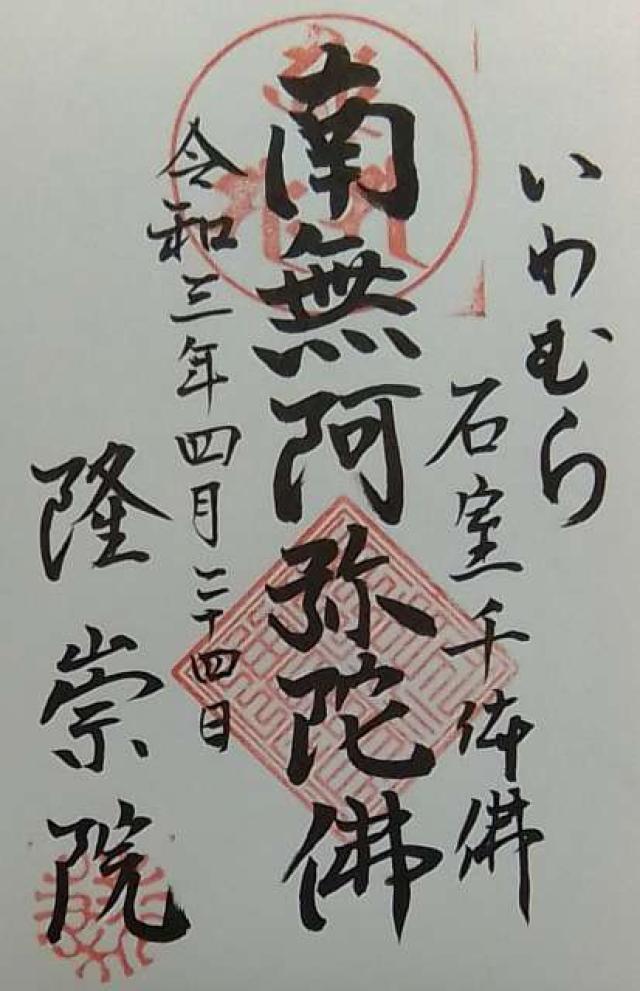 いわむら
石室千体佛
南無阿弥陀佛
令和三年四月二十四日
隆崇院